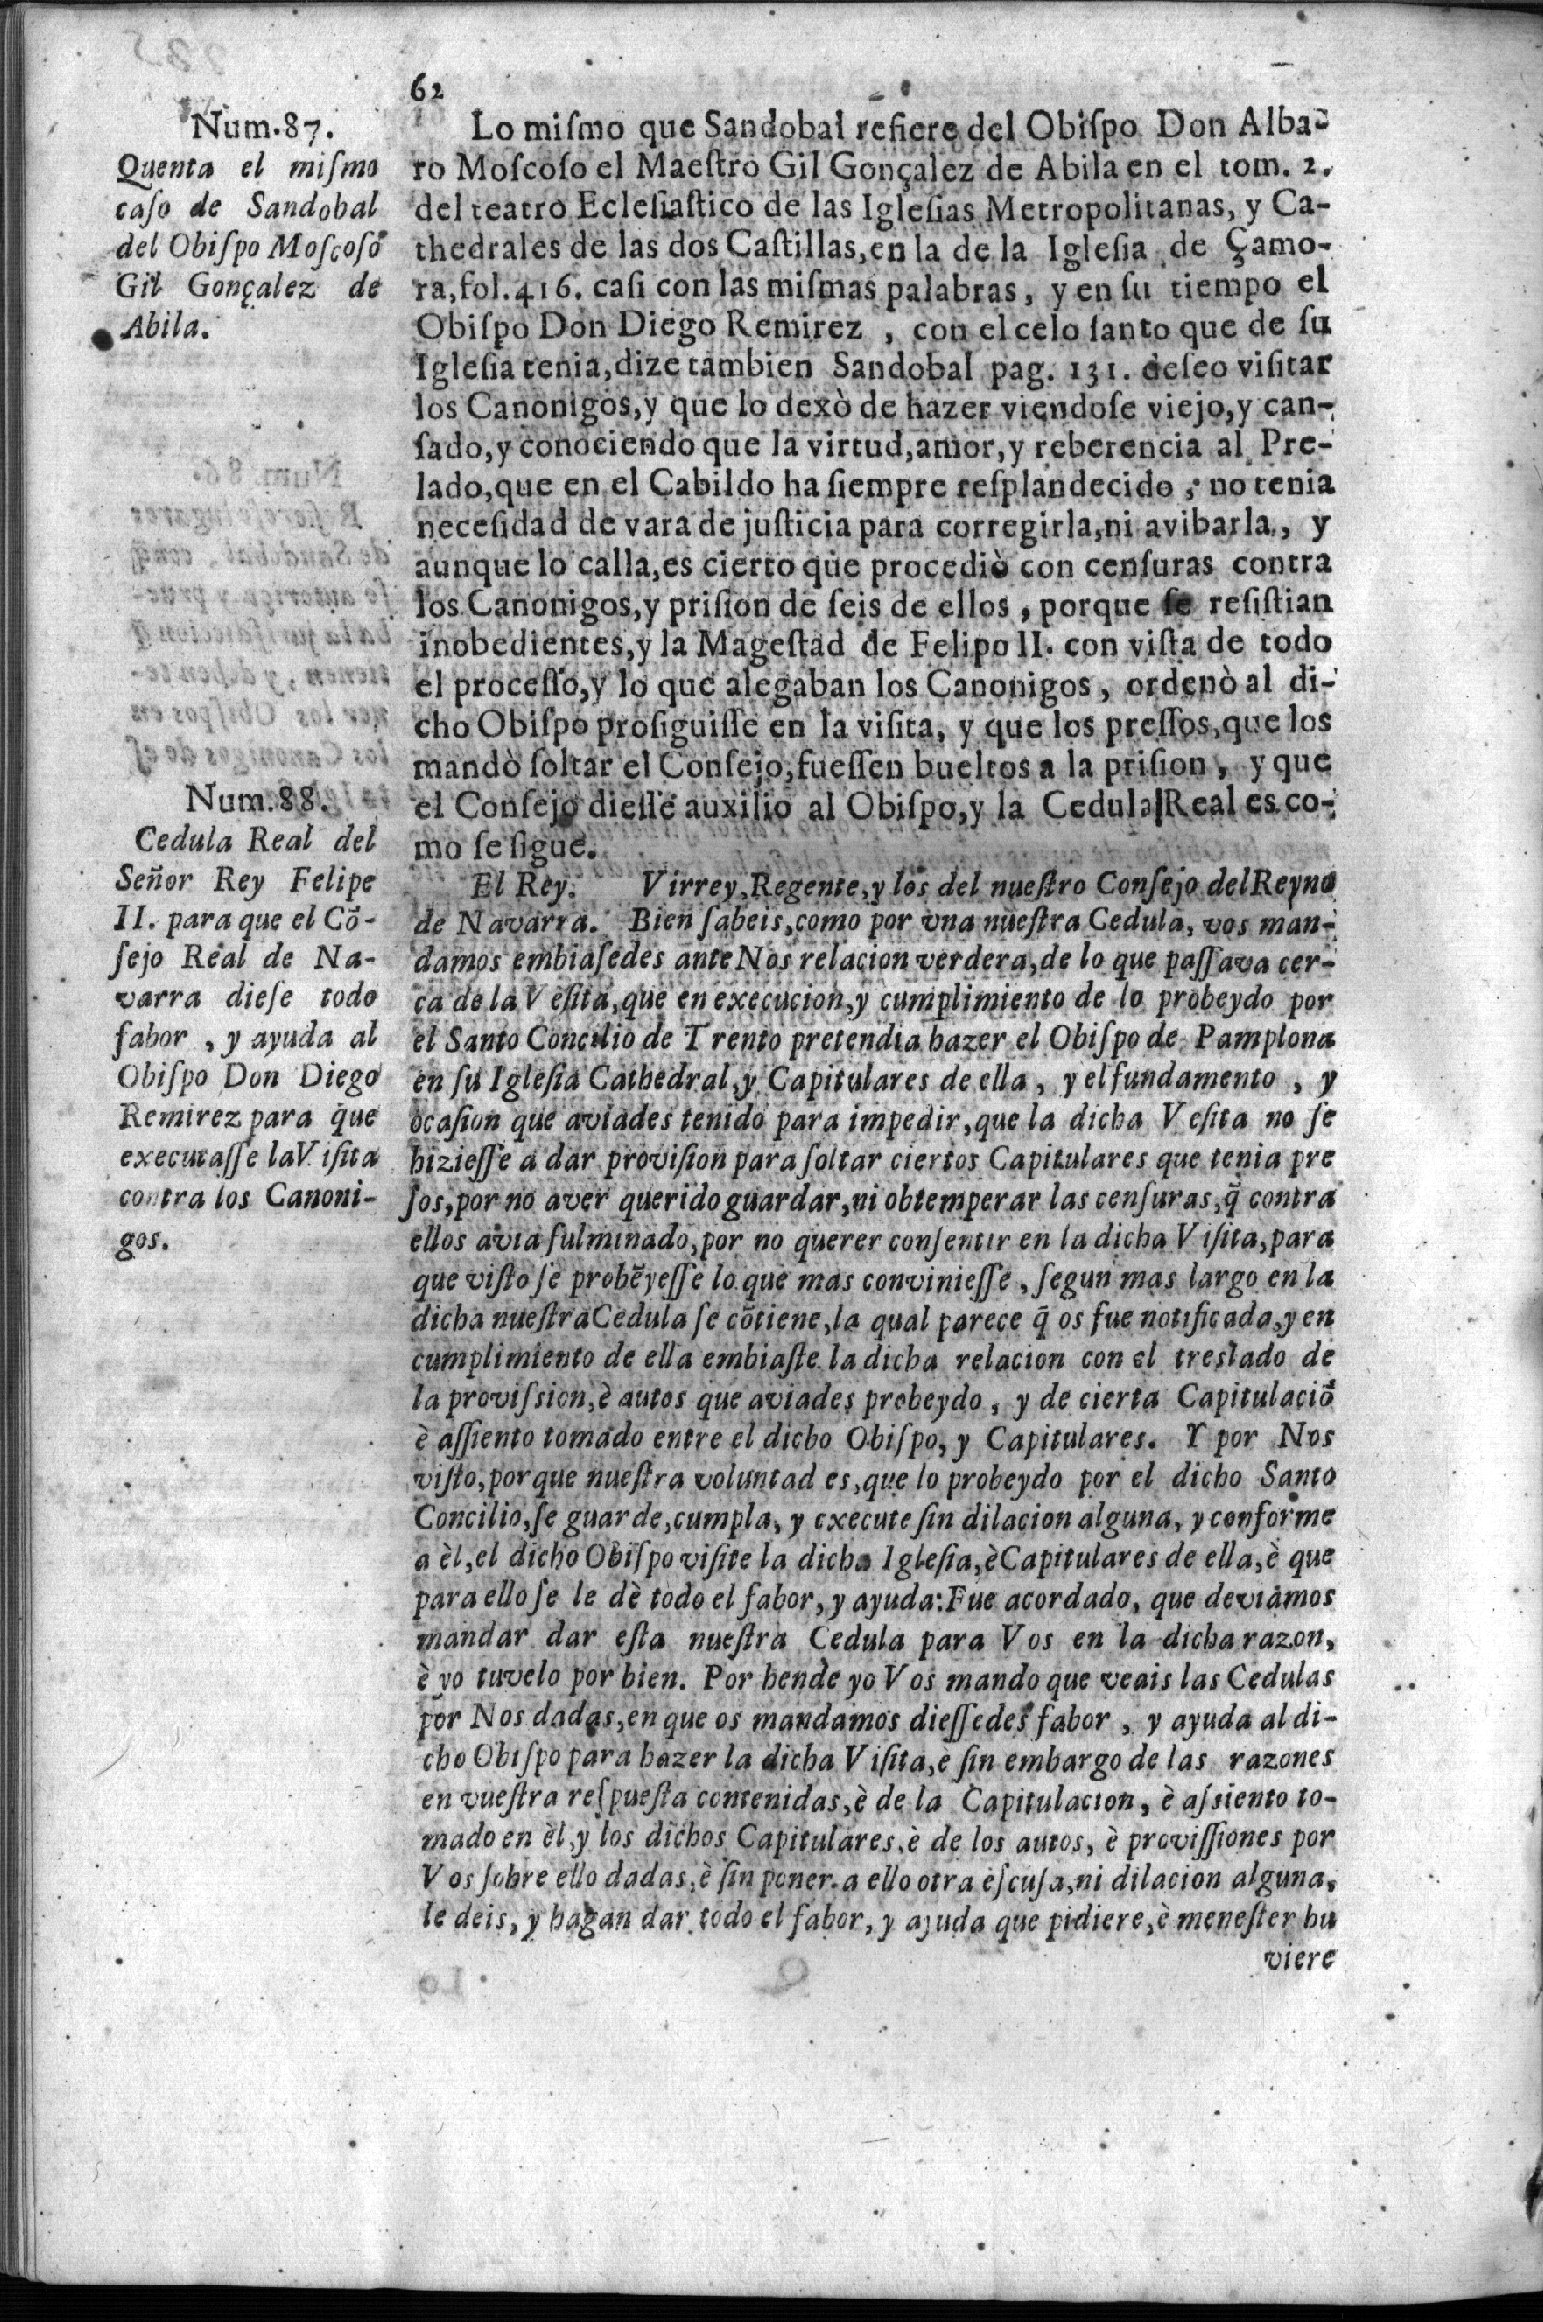 62
Num.87.
Quenta el miſmo
caſo de Sandobal
del Obiſpo Moſcoſo
Gil Gonçalez de
Abila.
Lo miſmo que Sandobal refiere del Obiſpo Don Alba-
ro Moſcoſo el Maeſtro Gil Gonçalez de Abila en el tom. 2.
del teatro Ecleſiaſtico de las Igleſias Metropolitanas, y Ca-
thedrales de las dos Caſtillas, en la de la Igleſia de Çamo-
ra, fol. 416. caſi con las miſmas palabras, y en ſu tiempo el
Obiſpo Don Diego Remirez, con el celo ſanto que de ſu
Igleſia tenia, dize tambien Sandobal pag. 131. deſeo viſitar
los Canonigos, y que lo dexò de hazer viendoſe viejo, y can-
ſado, y conociendo que la virtud, amor, y reberencia al Pre-
lado, que en el Cabildo ha ſiempre reſplandecido, no tenia
neceſidad de vara de juſticia para corregirla, ni avibarla, y
aunque lo calla, es cierto que procediò con cenſuras contra
los Canonigos, y priſion de ſeis de ellos, porque ſe reſiſtian
inobedientes, y la Mageſtad de Felipo II. con viſta de todo
el proceſſo, y lo que alegaban los Canonigos, ordenò al di-
cho Obiſpo proſiguiſſe en la viſita, y que los preſſos, que los
mandò ſoltar el Conſejo, fueſſen bueltos a la priſion, y que
el Conſejo dieſſe auxilio al Obiſpo, y la Cedula Real es co-
mo ſe ſigue.
Num.88.
Cedula Real del
Señor Rey Felipe
II. para que el Cõ-
ſejo Real de Na-
varra dieſe todo
fabor, y ayuda al
Obiſpo Don Diego
Remirez para que
executaſſe la Viſita
contra los Canoni-
gos.
El Rey. Virrey, Regente, y los del nueſtro Conſejo del Reyno
de Navarra. Bien ſabeis, como por vna nueſtra Cedula, vos man-
damos embiaſedes ante Nos relacion verdera, de lo que paſſava cer-
ca de la Veſita, que en execucion, y cumplimiento de lo probeydo por
el Santo Concilio de Trento pretendia hazer el Obiſpo de Pamplona
en ſu Igleſia Cathedral, y Capitulares de ella, y el fundamento, y
ocaſion que aviades tenido para impedir, que la dicha Veſita no ſe
hizieſſe a dar proviſion para ſoltar ciertos Capitulares que tenia pre
ſos, por no aver querido guardar, ni obtemperar las cenſuras, q̃ contra
ellos avia fulminado, por no querer conſentir en la dicha Viſita, para
que viſto ſe probeyeſſe lo que mas convinieſſe, ſegun mas largo en la
dicha nueſtra Cedula ſe cõtiene, la qual parece q̃ os fue notificada, y en
cumplimiento de ella embiaſte la dicha relacion con el treslado de
la proviſsion, è autos que aviades probeydo, y de cierta Capitulaciõ
è aſſiento tomado entre el dicho Obiſpo, y Capitulares. Y por Nos
viſto, porque nueſtra voluntad es, que lo probeydo por el dicho Santo
Concilio, ſe guarde, cumpla, y execute ſin dilacion alguna, y conforme
a èl, el dicho Obiſpo viſite la dicha Igleſia, è Capitulares de ella, è que
para ello ſe le dè todo el fabor, y ayuda: Fue acordado, que deviamos
mandar dar eſta nueſtra Cedula para Vos en la dicha razon,
è yo tuvelo por bien. Por hende yo Vos mando que veais las Cedulas
por Nos dadas, en que os mandamos dieſſedes fabor, y ayuda al di-
cho Obiſpo para hazer la dicha Viſita, è ſin embargo de las razones
en vueſtra reſpueſta contenidas, è de la Capitulacion, è aſsiento to-
mado en èl, y los dichos Capitulares, è de los autos, è proviſſiones por
Vos ſobre ello dadas, è ſin poner a ello otra eſcuſa, ni dilacion alguna,
le deis, y hagan dar todo el fabor, y ayuda que pidiere, è meneſter hu
viere